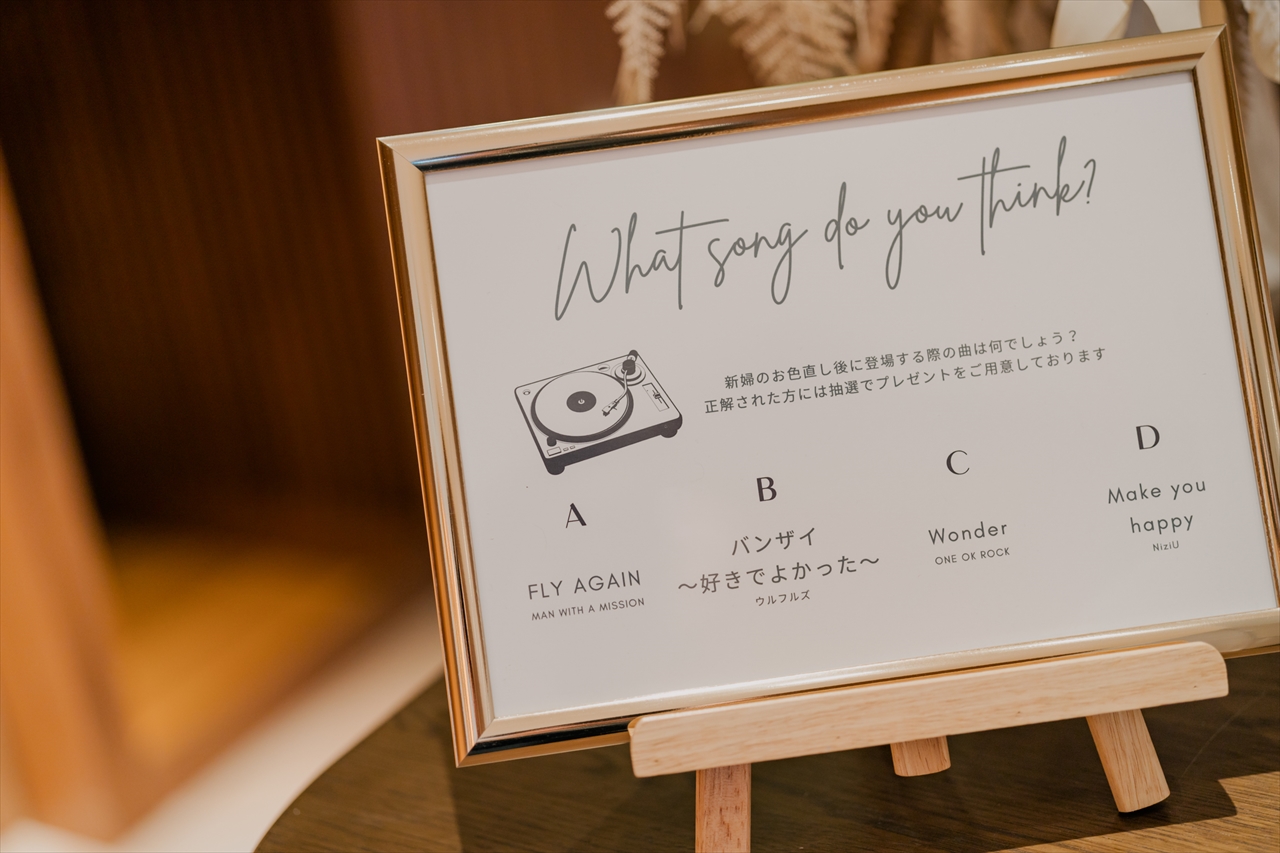 What song do you think?
新婦のお色直し後に登場する際の曲は何でしょう？
正解された方には抽選でプレゼントをご用意しております
A
FLY AGAIN
MAN WITH A MISSION
B
バンザイ
〜好きでよかった〜
ウルフルズ
C
Wonder
ONE OK ROCK
D
Make you
happy
NiziU